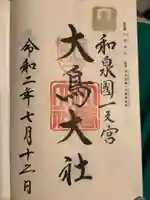 和泉國一之宮
大鳥大社
令和二年七月十二日